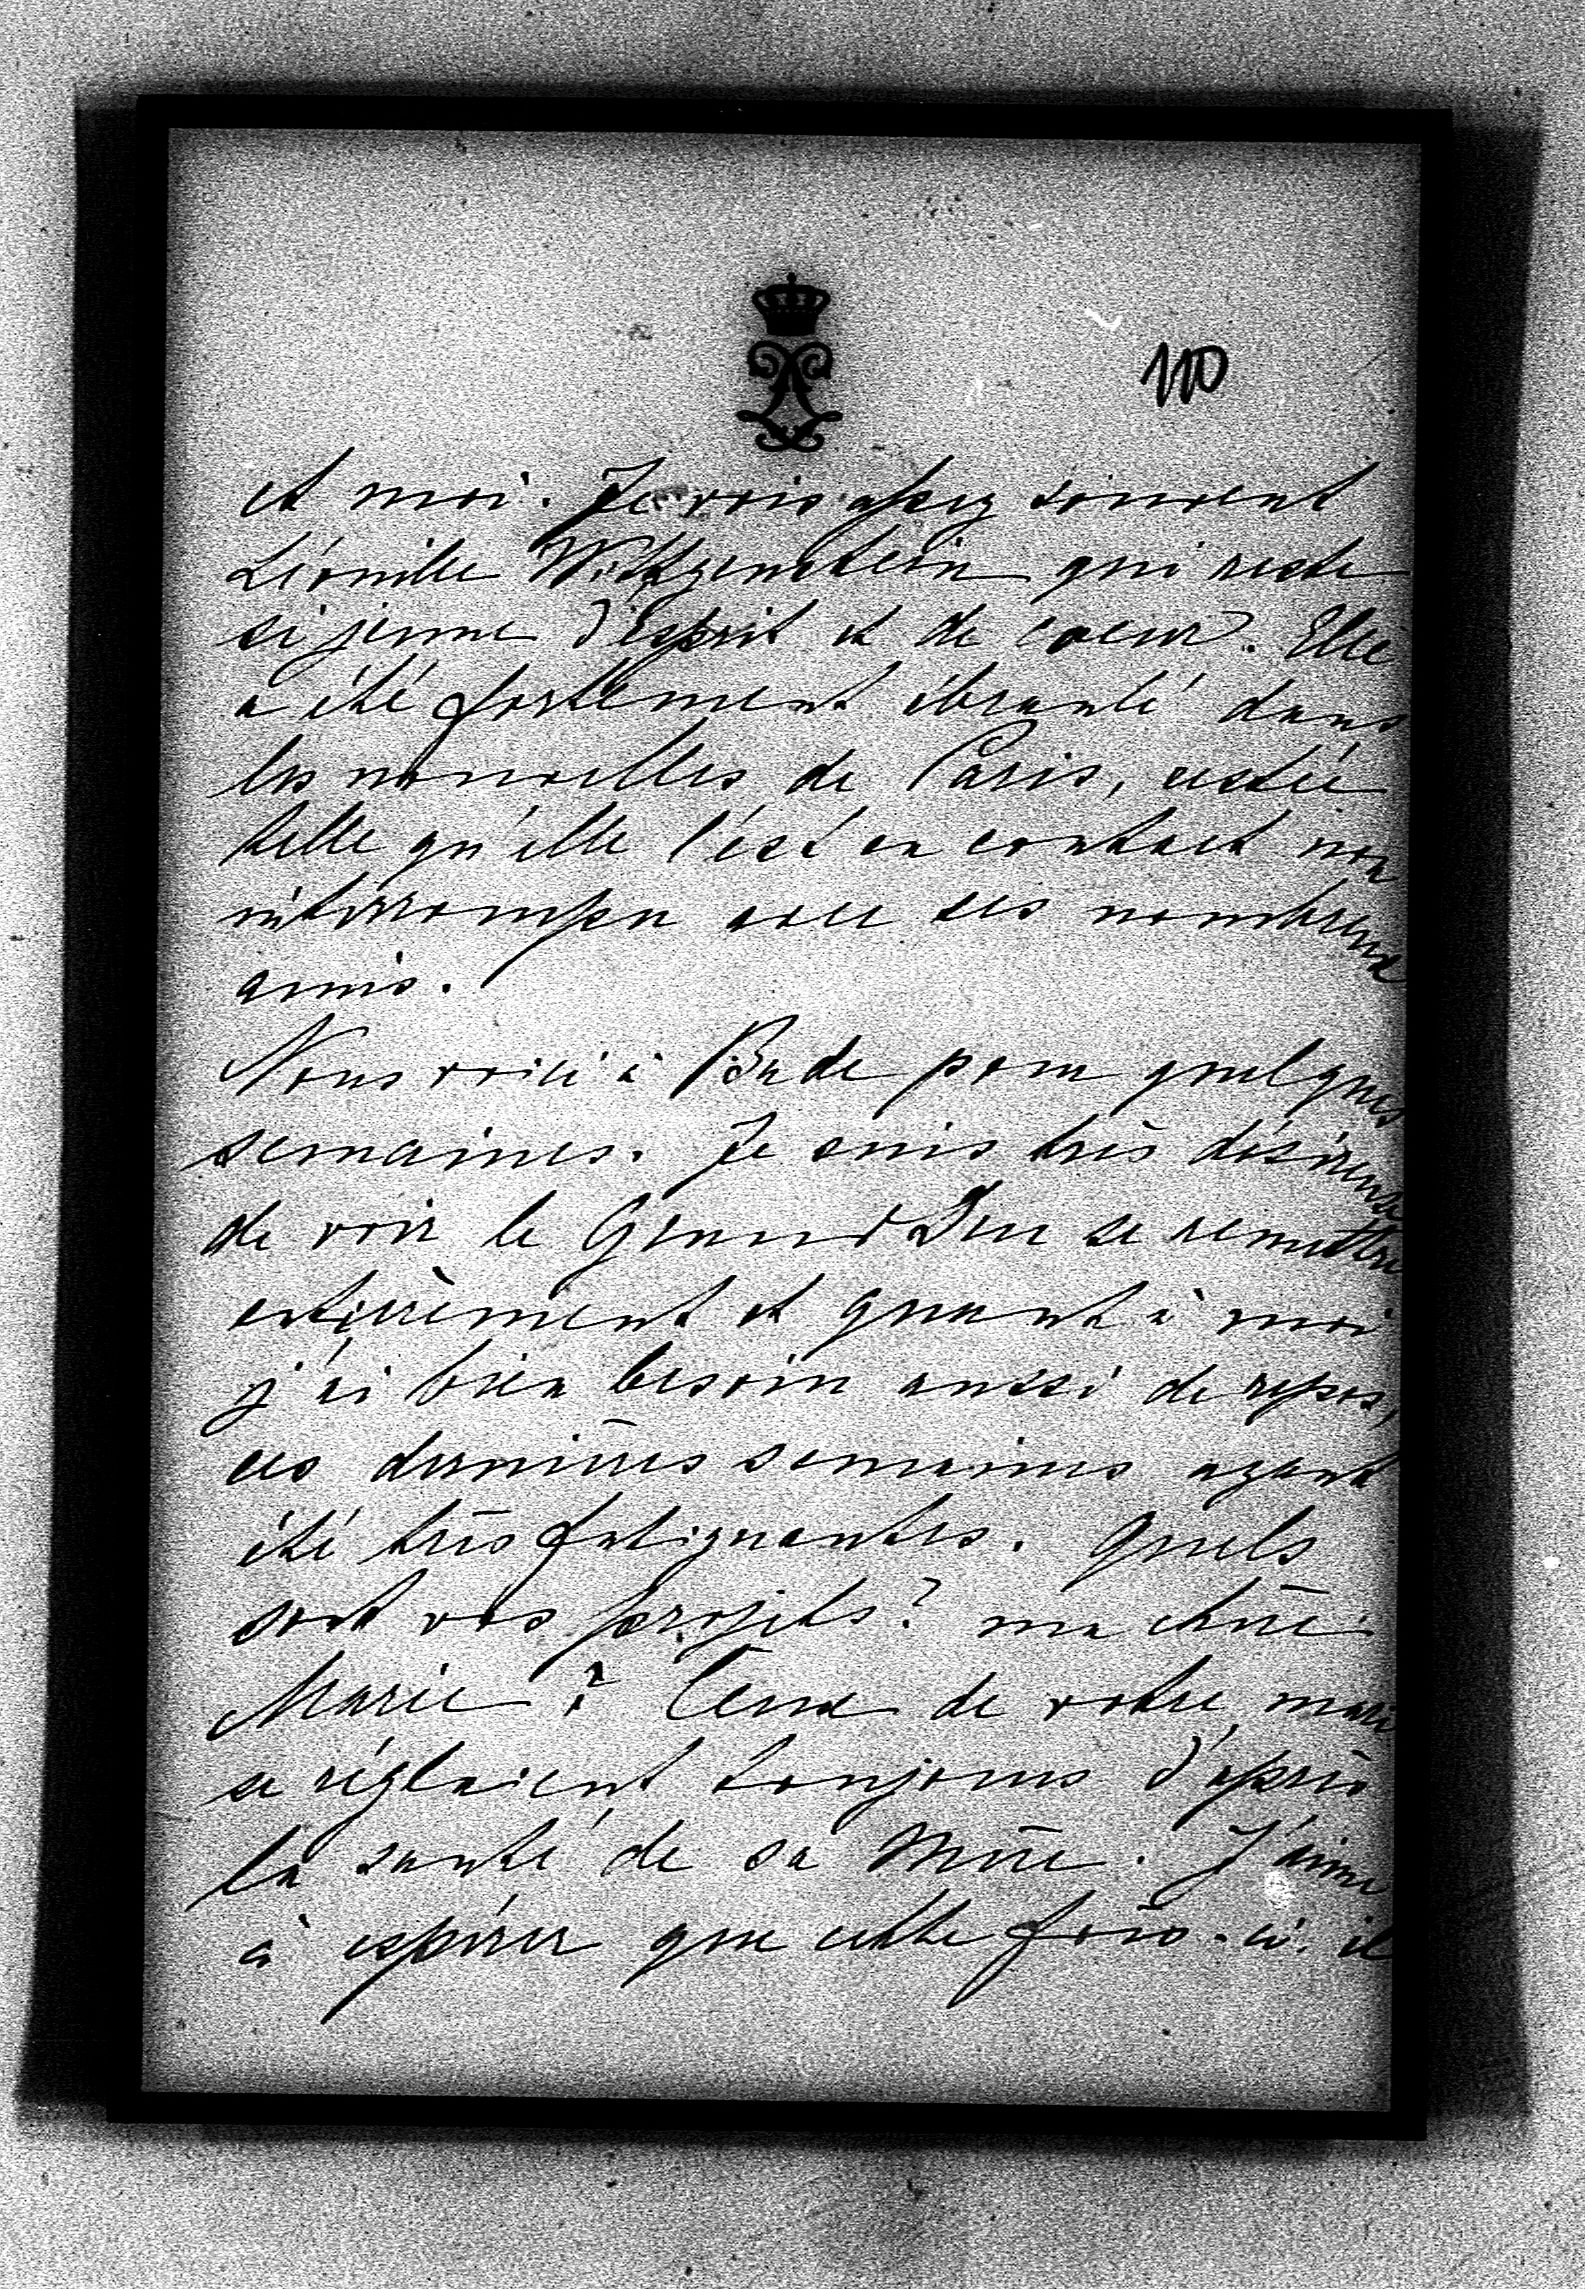 110
et moi. Je vois assez souvent
Léonille Wittgenstein qui reste
si jeune d'esprit et de coeur. Elle
a été fortement ébranlé dans
les nouvelles de Paris, restée
telle qu'elle l'est en contact non
interrompu avec ses nombreux
amis.
Nous voici à Bade pour quelques
semaines. Je suis très désireuse
de voir le Grand Duc se remettre
entièrement et quant à moi
j'ai bien besoin aussi de repos,
ces dernières semaines ayant
été très fatiguantes. Quels
sont vos projets? ma chère
Marie? Ceux de votre mari
se réglaient toujours d'après
la santé de sa Mère. J'aime
à espérer que cette fois-ci il